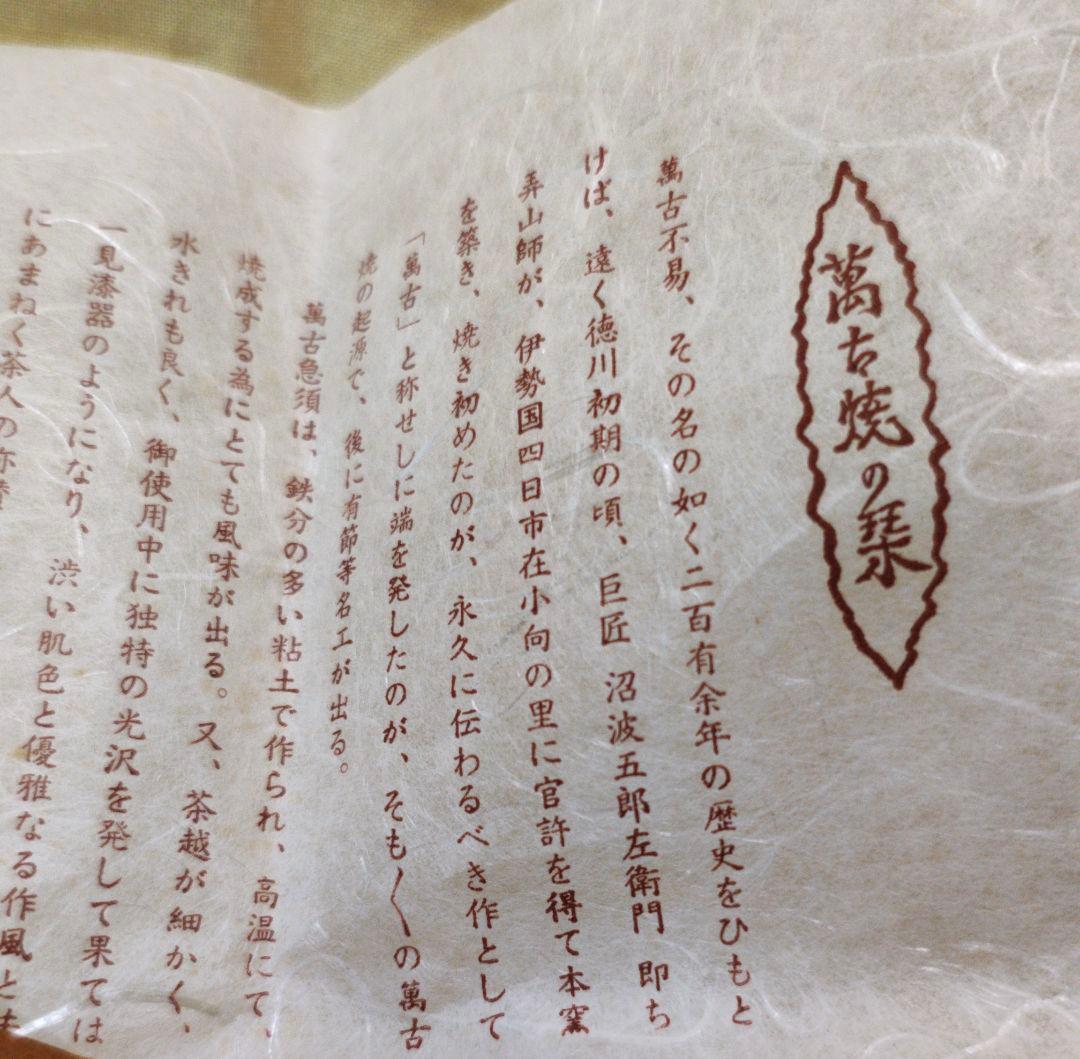 萬古焼の栞
萬古不易、その名の如く二百有余年の歴史をひもと
けば、遠く徳川初期の頃、巨匠 沼波五郎左衛門 即ち
弄山師が、伊勢国四日市在小向の里に官許を得て本窯
を築き、焼き初めたのが、永久に伝わるべき作として
「萬古」と称せしに端を発したのが、そも〳〵の萬古
焼の起源で、後に有節等名工が出る。
萬古急須は、鉄分の多い粘土で作られ、高温にて、
焼成する為にとても風味が出る。又、茶越が細かく、
水きれも良く、御使用中に独特の光沢を発して果ては
一見漆器のようになり、渋い肌色と優雅なる作風とま
にあまねく茶人の